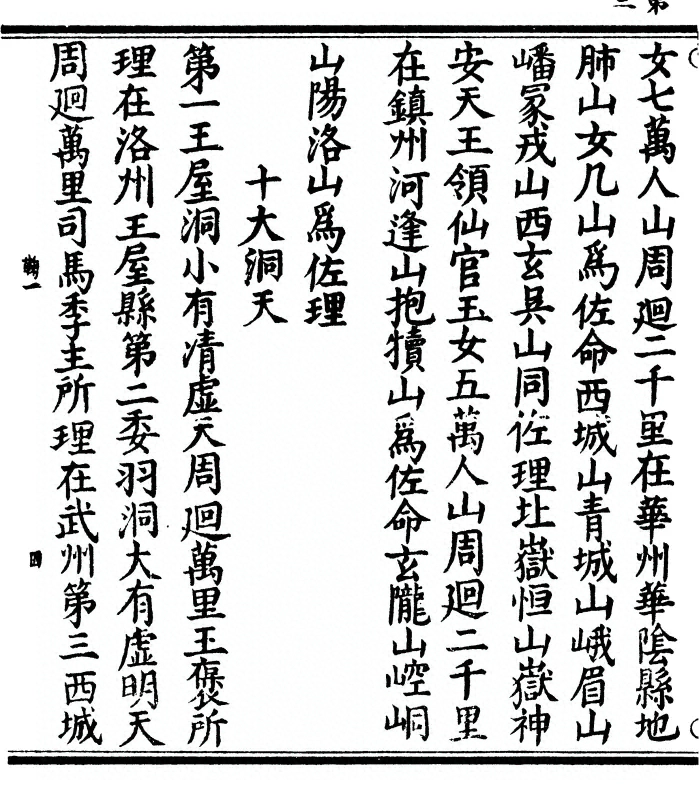 女七萬人山周廻二千里在華州華陰縣地
肺山女几山爲佐命西城山青城山峨眉山
嶓冢戎山西玄具山同佐理北嶽恒山嶽神
安天王領仙官玉女五萬人山周廻二千里
在鎮州河逢山抱犢山爲佐命玄隴山崆峒
山陽洛山爲佐理
十大洞天
第一王屋洞小有清虛天周廻萬里王襃所
理在洛州王屋縣第二委羽洞大有虛明天
周廻萬里司馬季主所理在武州第三西城